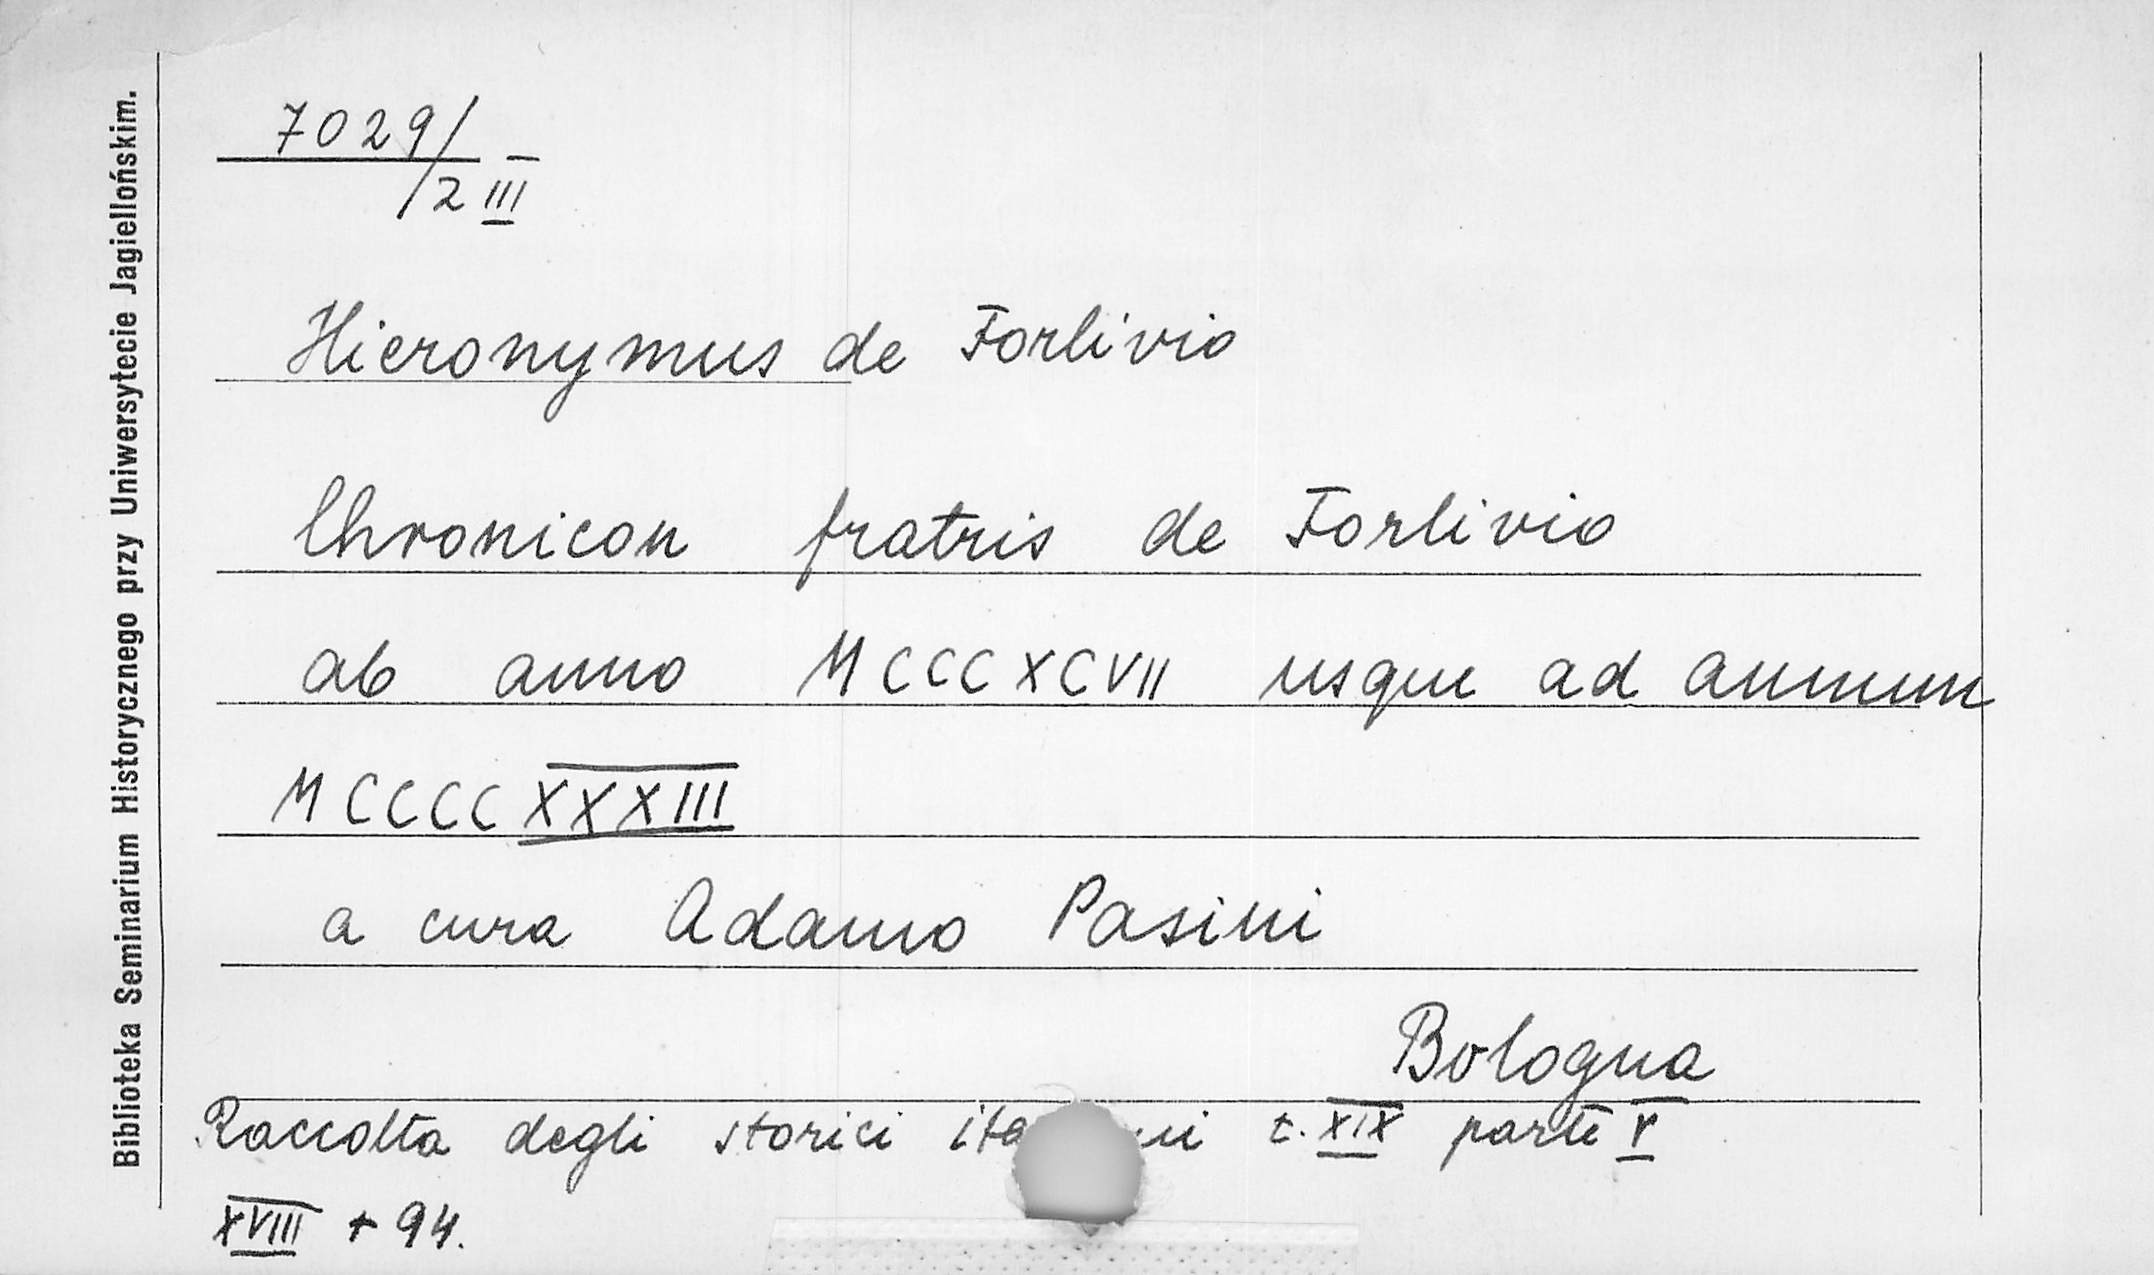 Biblioteka Seminarium Historycznego przy Uniwersytecie Jagiellońskim.
7029/
/2 III
Hieronymus de Forlivio
Chronicon fratris de Forlivio
ab anno MCCCXCVII usque ad annum
MCCCCXXXIII
a cura Adamo Pasini
Bologna
Raccolta degli storici t. XIX parte V
XVIII + 94.